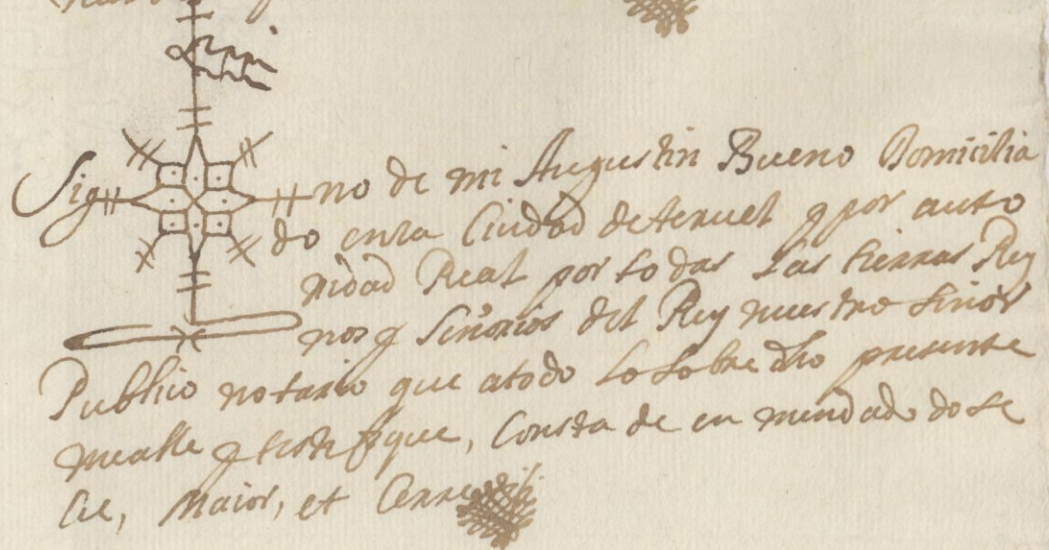 Sig no de mi Augustin Bueno Domicilia
do enla Ciudad de teruel y por auto
ridad Real por todas las tierras Rey
nos y Señorios del Rey nuestro Señor
Publico notario que atodo lo sobre dho presente
mealle y testifique, Consta de en mendado dose
cie, Maior, et Cerre